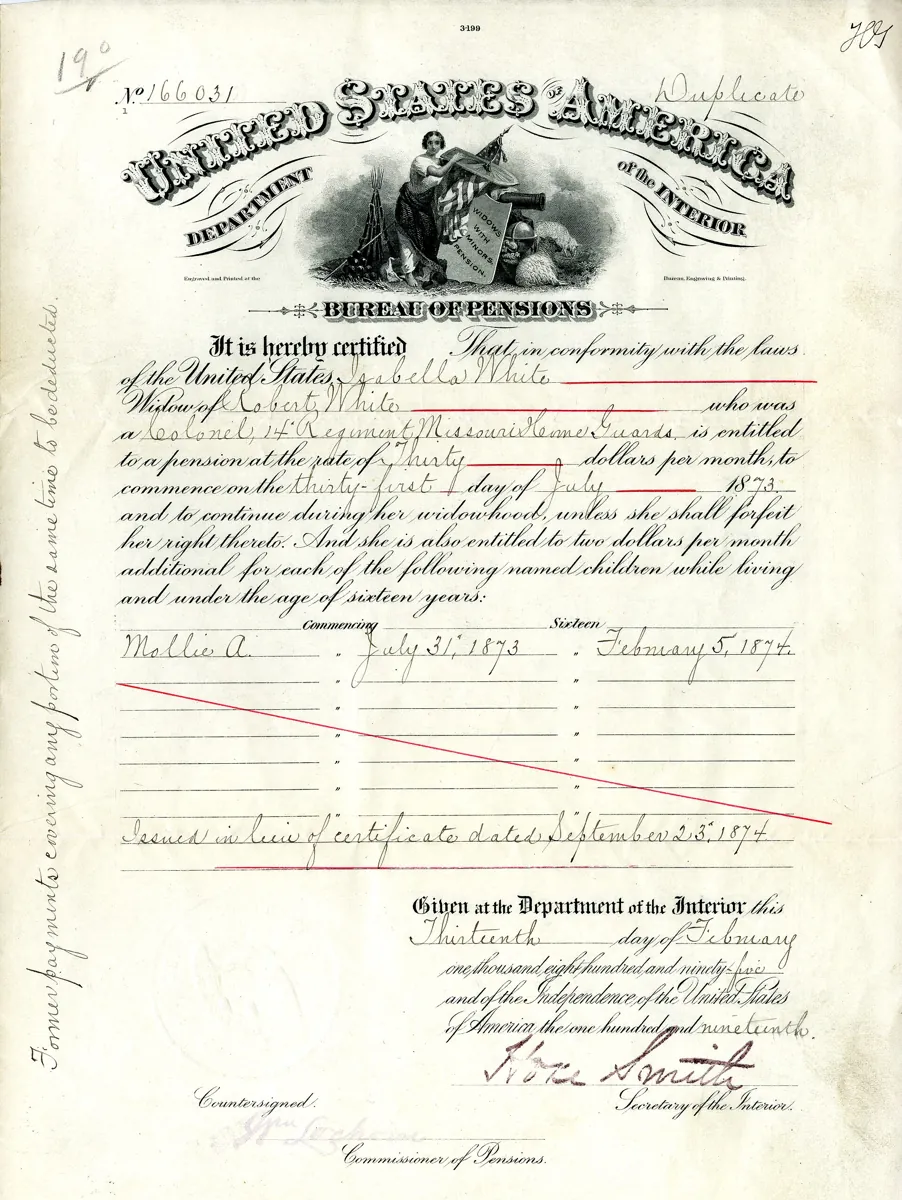 3-199
19⁰
No. 166031
Duplicate
UNITED STATES OF AMERICA
DEPARTMENT of the INTERIOR
WIDOWS
WITH
MINORS.
PENSION.
Engraved and Printed at the Bureau, Engraving & Printing.
BUREAU OF PENSIONS
It is hereby certified That in conformity with the laws
of the United States Isabella White
Widow of Robert White who was
a Colonel, 14" Regiment Missouri Home Guards is entitled
to a pension at the rate of Thirty dollars per month, to
commence on the thirty-first day of July 1873
and to continue during her widowhood, unless she shall forfeit
her right thereto. And she is also entitled to two dollars per month
additional for each of the following named children while living
and under the age of sixteen years:
Commencing Sixteen
Mollie A. " July 31", 1873 " February 5, 1874.
" "
" "
" "
" "
" "
Issued in lieu of certificate dated September 23", 1874
Given at the Department of the Interior this
Thirteenth day of February
one thousand eight hundred and ninety-five
and of the Independence of the United States
of America the one hundred and nineteenth.
Hoke Smith
Secretary of the Interior.
Countersigned.
Wm Lochren
Commissioner of Pensions.
Former payments covering any portion of the same time to be deducted.